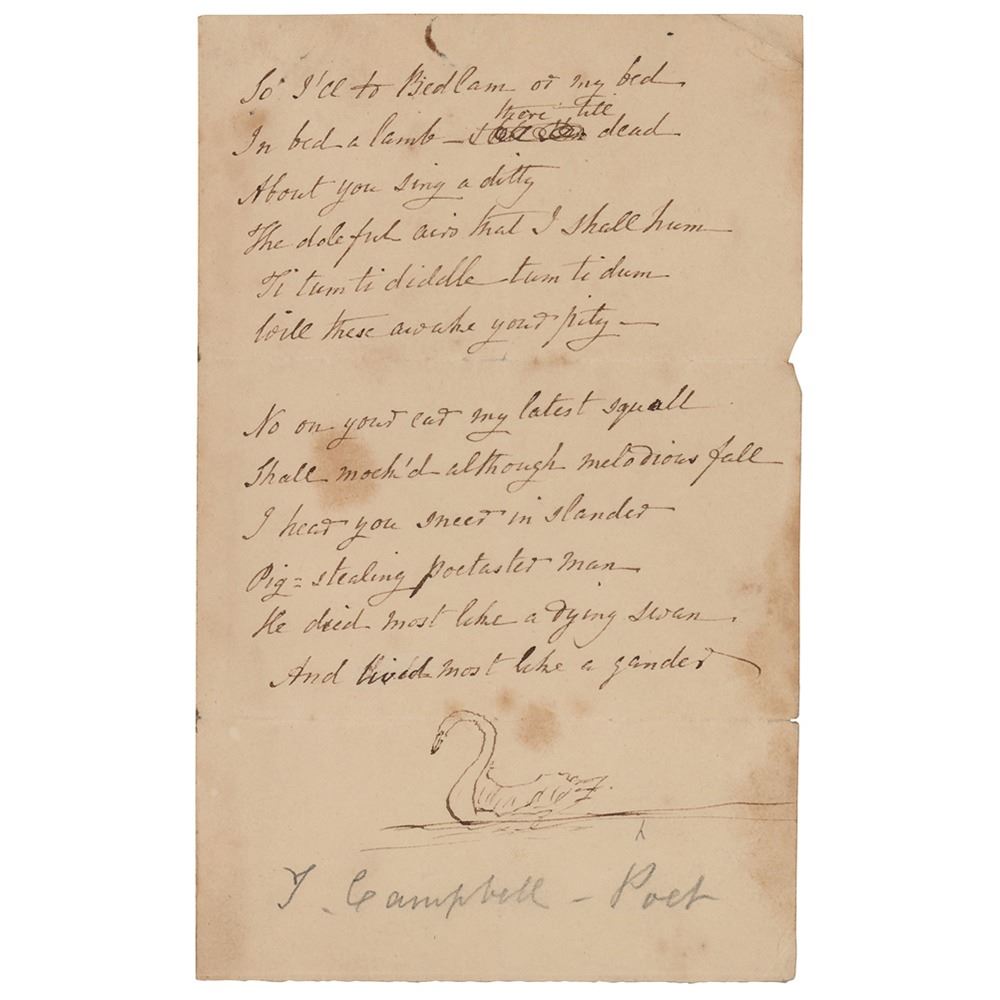 So I'll to Bedlam or my bed
there till
In bed a lamb – dead
About you sing a ditty
The doleful airs that I shall hum
Ti tum ti diddle tum ti dum
Will these awake your pity –
No on your ear my latest squall
Shall mock'd although melodious fall
I hear you sneer in slander
Pig = stealing poetaster man
He died most like a dying swan.
And lived most like a gander
T. Campbell – Poet